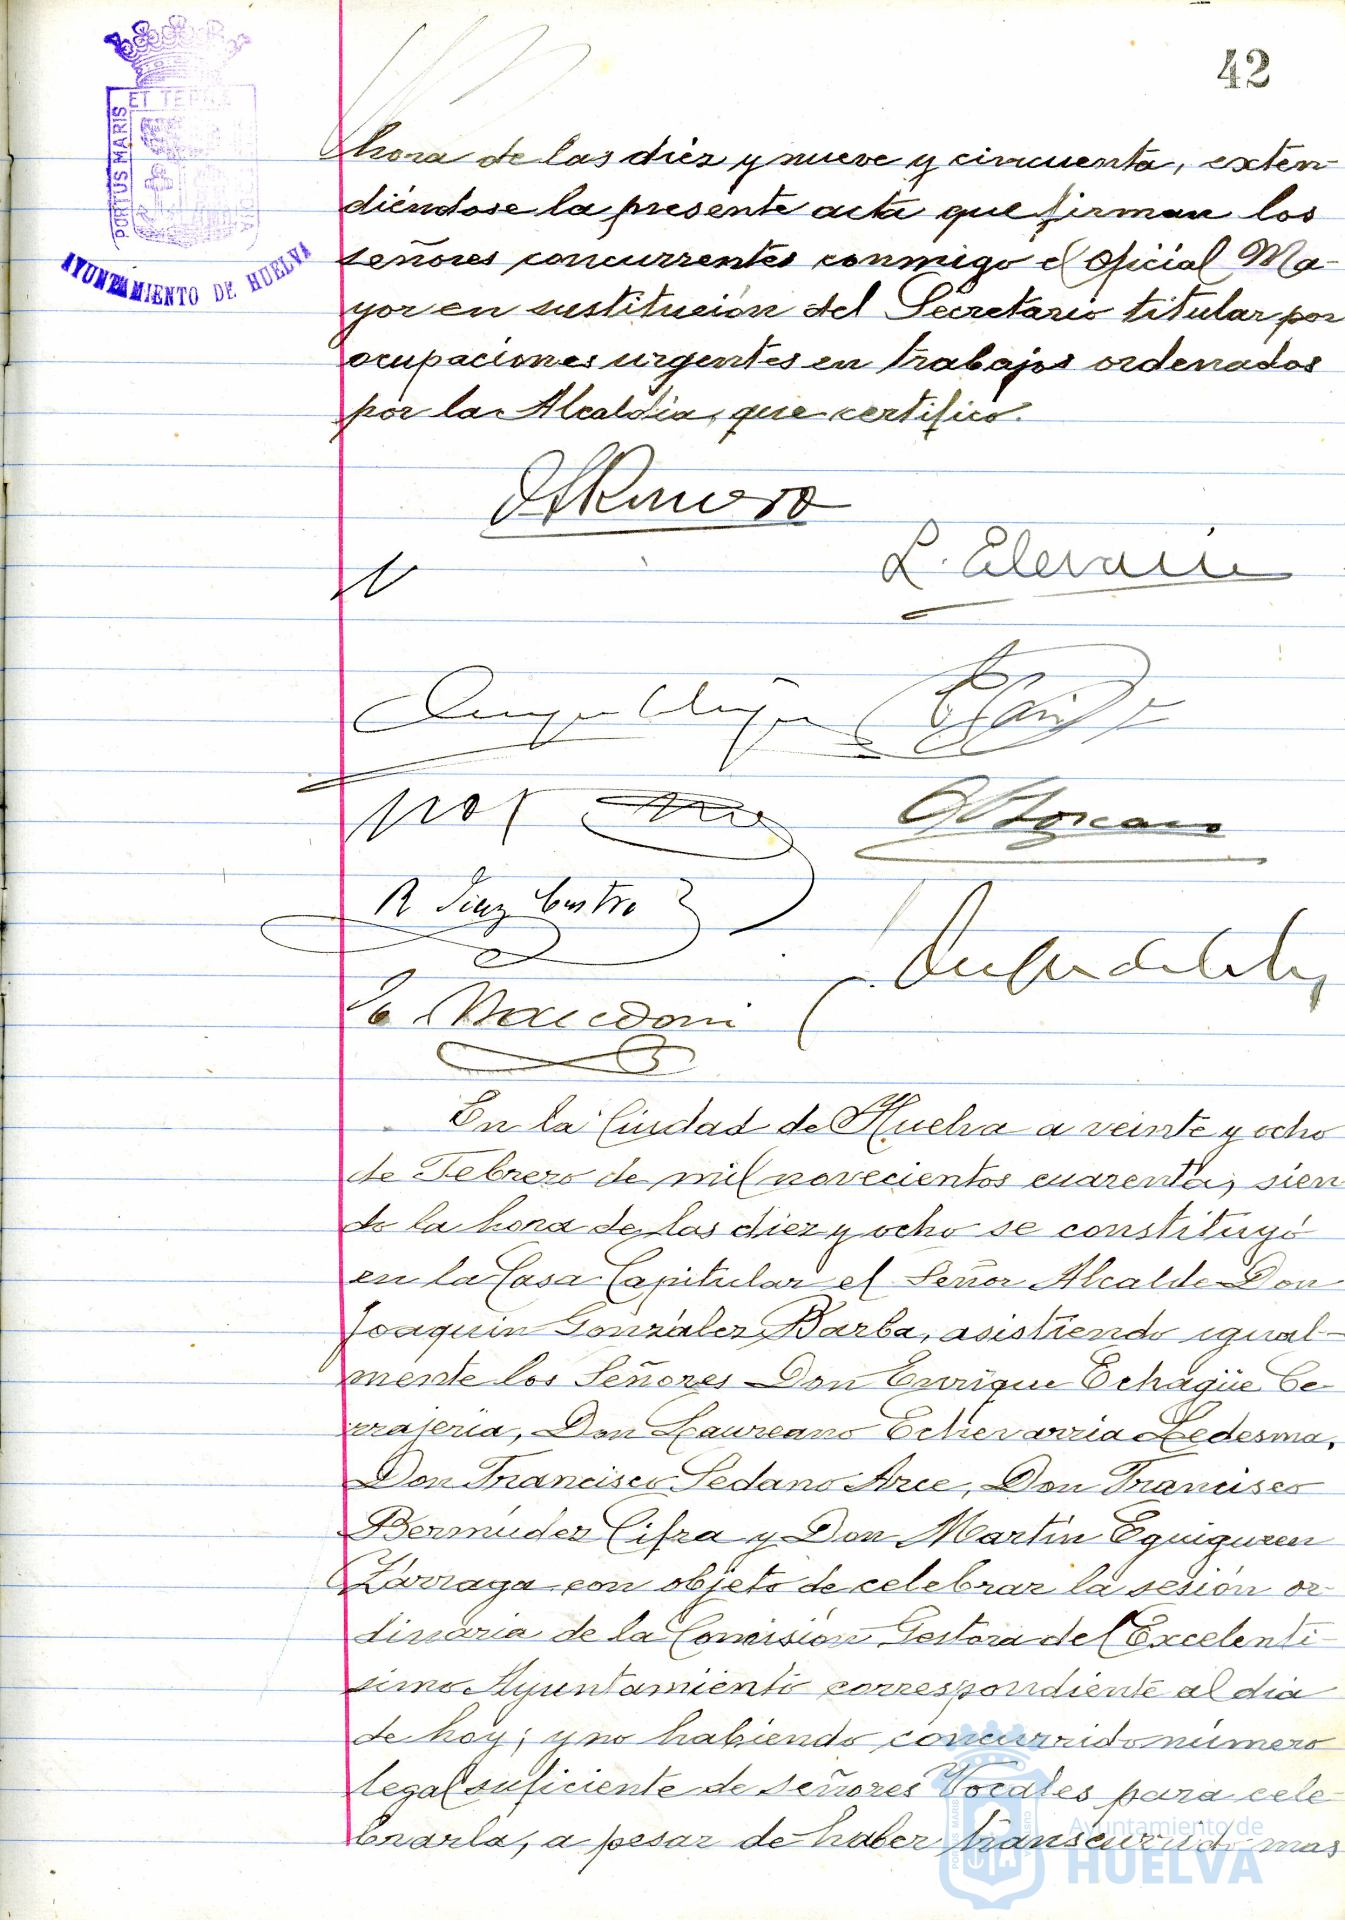 42
PORTUS MARIS ET TERRÆ CUSTODIA
AYUNTAMIENTO DE HUELVA
hora de las diez y nueve y cincuenta, exten-
diéndose la presente acta que firman los
señores concurrentes conmigo el Oficial Ma-
yor en sustitución del Secretario titular por
ocupaciones urgentes en trabajos ordenados
por la Alcaldía, que certifico.
Romero
L.
R Diaz Castro
En la Ciudad de Huelva a veinte y ocho
de Febrero de mil novecientos cuarenta, sien
do la hora de las diez y ocho se constituyó
en la Casa Capitular el Señor Alcalde Don
Joaquin González Barba, asistiendo igual-
mente los Señores Don Enrique Echagüe Ce-
rrajería, Don Laureano Echevarria Ledesma,
Don Francisco Sedano Arce, Don Francisco
Bermúdez Cifra y Don Martín Eguiguren
Zárraga con objeto de celebrar la sesión or-
dinaria de la Comisión Gestora del Excelentí-
simo Ayuntamiento correspondiente al dia
de hoy; y no habiendo concurrido número
legal suficiente de señores Vocales para cele-
brarla, a pesar de haber transcurrido mas
Ayuntamiento de
HUELVA